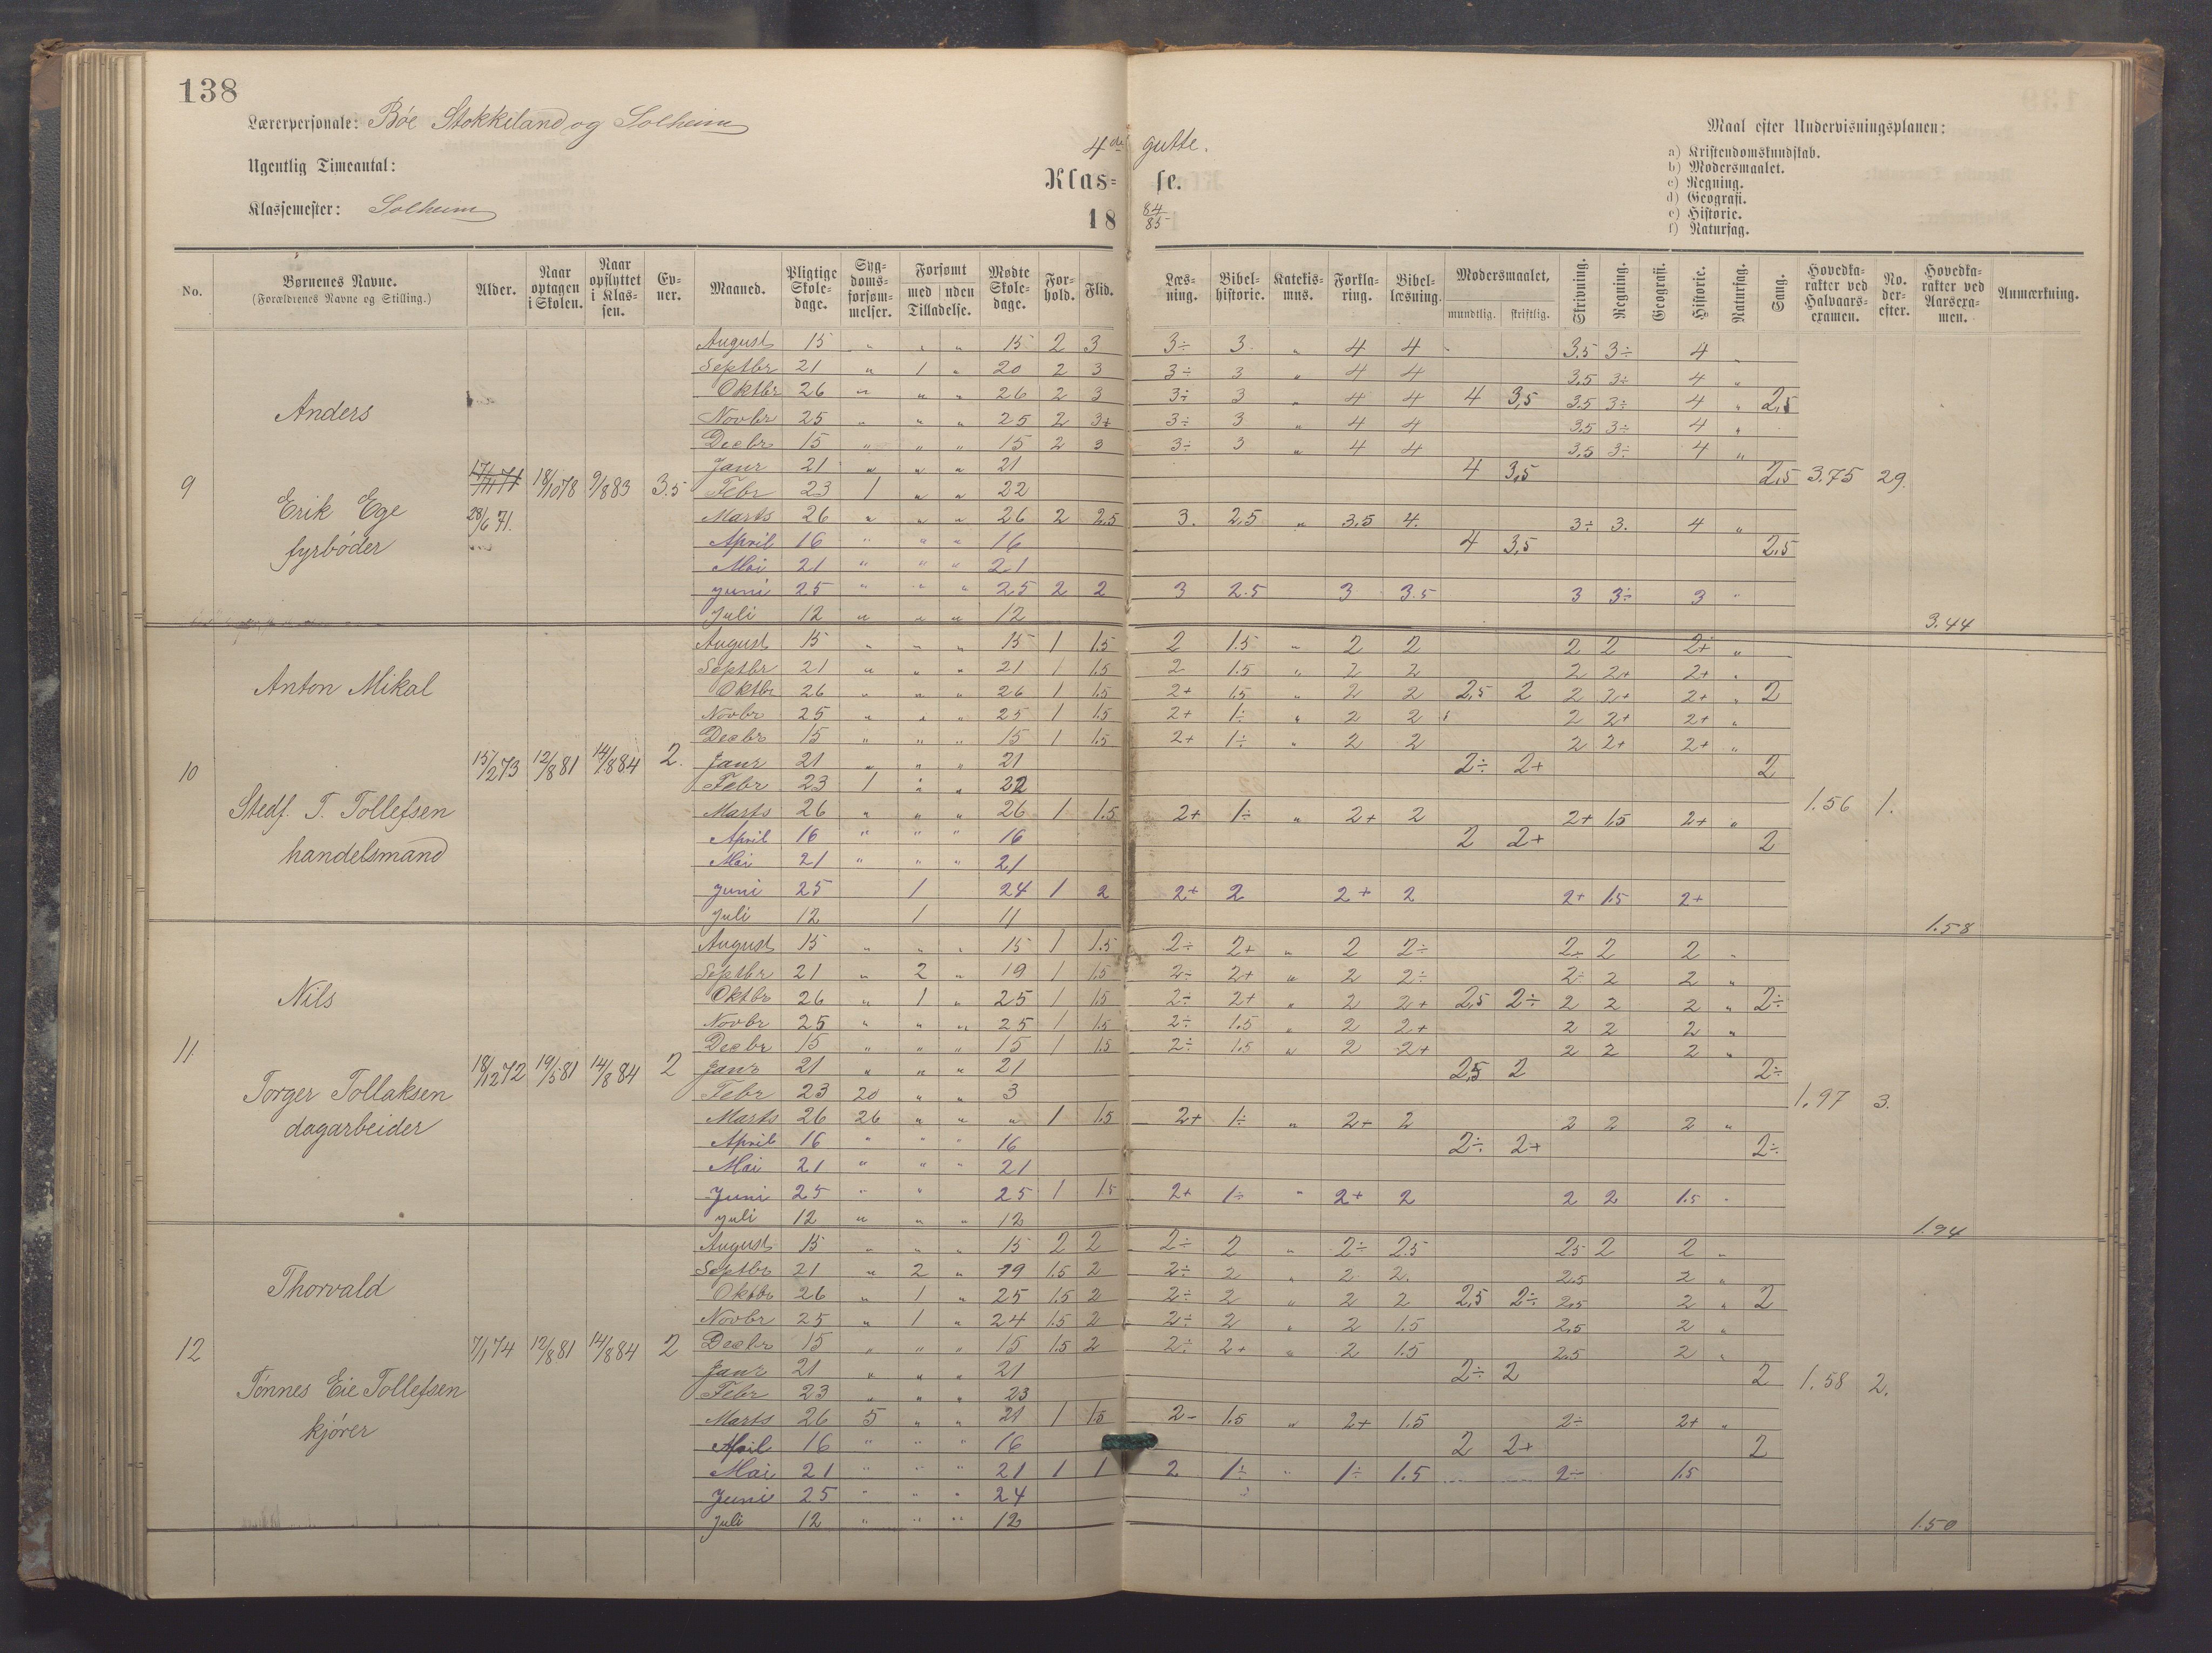 138
Lærerpersonale: Bóe Stokkiland og Solheim
Ugentlig Timeantal:
Klassemester: Solheim
4de gutte.
Klas- se.
18 84/85
Maal efter Undervisningsplanen:
a) Kristendomskundskab.
b) Modersmaalet.
c) Regning.
d) Geografi.
e) Historie.
f) Naturfag.
No. | Børnenes Navne. (Forældrenes Navne og Stilling.) | Alder. | Naar optagen i Skolen. | Naar opflyttet i Klassen. | Evner. | Maaned. | Pligtige Skoledage. | Sygdomsforsømmelser. | Forsømt med Tilladelse. | uden Tilladelse. | Mødte Skoledage. | Forhold. | Flid. | Læsning. | Bibelhistorie. | Katekismus. | Forklaring. | Bibellæsning. | Modersmaalet, mundtlig. | skriftlig. | Skrivning. | Regning. | Geografi. | Historie. | Naturfag. | Sang. | Hovedkarakter ved Halvaarsexamen. | No. derefter. | Hovedkarakter ved Aarsexamen. | Anmærkning.
9 Anders
Erik Ege
fyrbóder
17/11 71
28/6 71. 18/10 78 9/8 83 3.5
August 15 " " " 15 2 3 3÷ 3 " 4 4 3.5 3÷ 4 "
Septbr 21 " 1 " 20 2 3 3÷ 3 " 4 4 3.5 3÷ 4 "
Oktbr 26 " " " 26 2 3 3÷ 3 " 4 4 4 3,5 3.5 3÷ 4 " 2,5
Novbr 25 " " " 25 2 3+ 3÷ 3 " 4 4 3.5 3÷ 4 "
Decbr 15 " " " 15 2 3 3÷ 3 " 4 4 3.5 3÷ 4 "
Janr 21 " " " 21 4 3,5 2,5 3.75 29.
Febr 23 1 " " 22
Marts 26 " " " 26 2 2.5 3. 2.5 " 3.5 4. 3÷ 3. 4 "
April 16 " " " 16 4 3,5 2,5
Mai 21 " " " 21
Juni 25 " " " 25 2 2 3 2.5 3 3.5 3 3÷ 3 "
Juli 12 " " " 12 3.44
10 Anton Mikal
Stedf. T. Tollefsen
handelsmand
15/2 73 12/8 81 14/8 84 2.
August 15 " " " 15 1 1.5 2 1.5 " 2 2 2 2 2+ "
Septbr 21 " " " 21 1 1.5 2 1.5 " 2 2 2 2+ 2+ "
Oktbr 26 " " " 26 1 1.5 2+ 1.5 " 2 2 2,5 2 2 2+ 2+ " 2
Novbr 25 " " " 25 1 1.5 2+ 1÷ " 2 2 2 2+ 2+ "
Decbr 15 " " " 15 1 1.5 2+ 1÷ " 2 2 2 2+ 2+ "
Janr 21 " " " 21 2÷ 2+ 2
Febr 23 1 " " 22 1.56 1.
Marts 26 " " " 26 1 1.5 2+ 1÷ " 2+ 2 2+ 1.5 2+ "
April 16 " " " 16 2 2+ 2
Mai 21 " " " 21
Juni 25 1 24 1 2 2+ 2 2+ 2 2+ 1.5 2+
Juli 12 1 11 1.58
11. Nils
Torger Tollaksen
dagarbeider
18/12 72 19/5 81 14/8 84 2
August 15 " " " 15 1 1.5 2÷ 2+ " 2 2÷ 2÷ 2 2 "
Septbr 21 " 2 " 19 1 1.5 2÷ 2+ " 2 2÷ 2÷ 2 2 "
Oktbr 26 " 1 " 25 1 1.5 2÷ 2+ " 2 2+ 2,5 2÷ 2 2 2 " 2÷
Novbr 25 " " " 25 1 1.5 2÷ 1.5 " 2 2+ 2 2 2 "
Decbr 15 " " " 15 1 1.5 2÷ 1.5 " 2 2+ 2 2 2 "
Janr 21 " " " 21 2,5 2 2÷
Febr 23 20 " " 3 1.97 3.
Marts 26 26 " " " 1 1.5 2+ 1÷ " 2+ 2 2 2 2 "
April 16 " " " 16 2÷ 2+ 2÷
Mai 21 " " " 21
Juni 25 " " 25 1 1.5 2+ 1÷ " 2+ 2 2 2 1.5 "
Juli 12 " " " 12 1.94
12 Thorvald
Tónnes Eie Tollefsen
kjórer
7/1 74 12/8 81 14/8 84 2
August 15 " " " 15 2 2 2÷ 2 " 2÷ 2.5 2.5 2 2 "
Septbr 21 " 2 " 19 1.5 2 2÷ 2 " 2 2. 2.5 2 "
Oktbr 26 " 1 " 25 1.5 2 2÷ 2 " 2 2 2,5 2÷ 2.5 2 " 2
Novbr 25 " 1 " 24 1.5 2 2÷ 2 " 2 1.5 2.5 2 "
Decbr 15 " " " 15 1.5 2 2÷ 2+ " 2 1.5 2.5 2 "
Janr 21 " " " 21 2÷ 2 2 1.58 2.
Febr 23 " " " 23
Marts 26 5 " " 21 1 1.5 2- 1.5 " 2+ 1.5 2÷ 2+ "
April 16 " " " 16 2 2+ 2
Mai 21 " " " 21 1 1 2 1÷ " 1÷ 1.5 2÷ 1.5
Juni 25 " " " 24
Juli 12 " " " 12 1.50